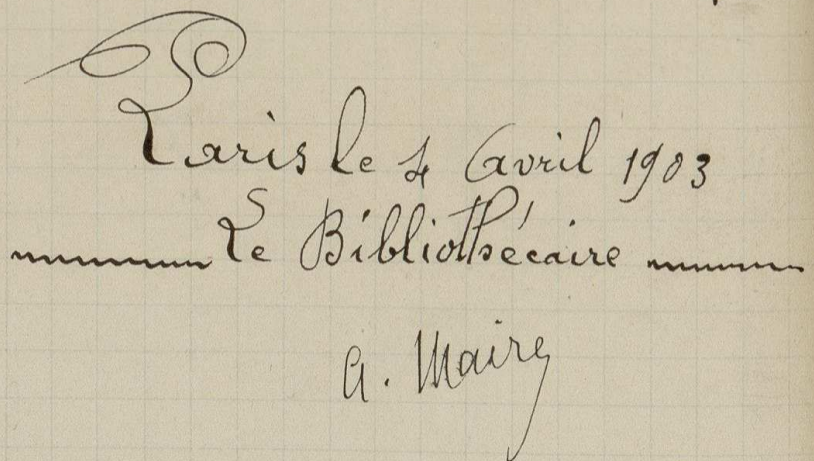 Paris le 4 Avril 1903
Le Bibliothécaire
A. Maire